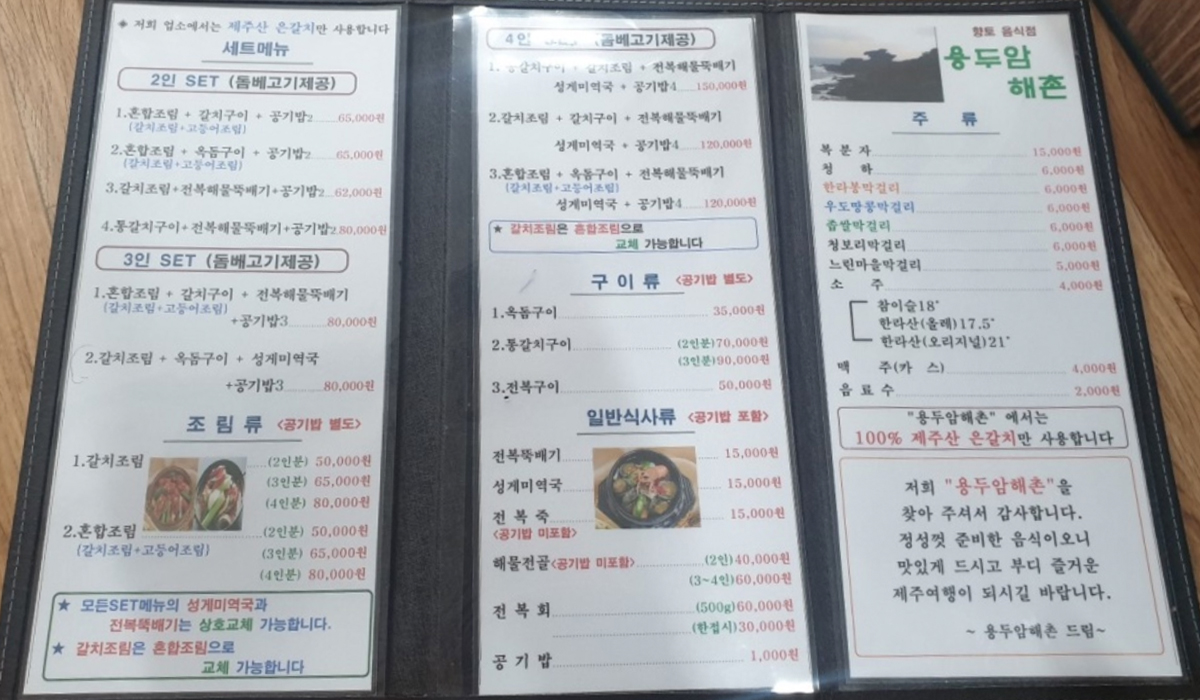 ◈ 저희 업소에서는 제주산 은갈치만 사용합니다
세트메뉴
2인 SET (돔베고기제공)
1.혼합조림 + 갈치구이 + 공기밥2 65,000원
(갈치조림+고등어조림)
2.혼합조림 + 옥돔구이 + 공기밥2 65,000원
(갈치조림+고등어조림)
3.갈치조림+전복해물뚝배기+공기밥2 62,000원
4.통갈치구이+전복해물뚝배기+공기밥2 80,000원
3인 SET (돔베고기제공)
1.혼합조림 + 갈치구이 + 전복해물뚝배기
(갈치조림+고등어조림)
+공기밥3 80,000원
2.갈치조림 + 옥돔구이 + 성게미역국
+공기밥3 80,000원
조림류 <공기밥 별도>
1.갈치조림 (2인분) 50,000원
(3인분) 65,000원
(4인분) 80,000원
2.혼합조림 (2인분) 50,000원
(갈치조림+고등어조림) (3인분) 65,000원
(4인분) 80,000원
★ 모든SET메뉴의 성게미역국과
전복뚝배기는 상호교체 가능합니다.
★ 갈치조림은 혼합조림으로
교체 가능합니다
4인 (돔베고기제공)
1.통갈치구이 + 갈치조림 + 전복해물뚝배기
성게미역국 + 공기밥4 150,000원
2.갈치조림 + 갈치구이 + 전복해물뚝배기
성게미역국 + 공기밥4 120,000원
3.혼합조림 + 옥돔구이 + 전복해물뚝배기
(갈치조림+고등어조림)
성게미역국 + 공기밥4 120,000원
★ 갈치조림은 혼합조림으로
교체 가능합니다
구이류 <공기밥 별도>
1.옥돔구이 35,000원
2.통갈치구이 (2인분)70,000원
(3인분)90,000원
3.전복구이 50,000원
일반식사류 <공기밥 포함>
전복뚝배기 15,000원
성게미역국 15,000원
전복죽 15,000원
<공기밥 미포함>
해물전골<공기밥 미포함> (2인)40,000원
(3~4인)60,000원
전복회 (500g)60,000원
(한접시)30,000원
공기밥 1,000원
향토 음식점
용두암
해촌
주 류
복분자 15,000원
청 하 6,000원
한라봉막걸리 6,000원
우도땅콩막걸리 6,000원
좁쌀막걸리 6,000원
청보리막걸리 6,000원
느린마을막걸리 5,000원
소 주 4,000원
참이슬18°
한라산(올레)17.5°
한라산(오리지널)21°
맥 주(카 스) 4,000원
음료수 2,000원
"용두암해촌" 에서는
100% 제주산 은갈치만 사용합니다
저희 "용두암해촌"을
찾아 주셔서 감사합니다.
정성껏 준비한 음식이오니
맛있게 드시고 부디 즐거운
제주여행이 되시길 바랍니다.
~ 용두암해촌 드림~